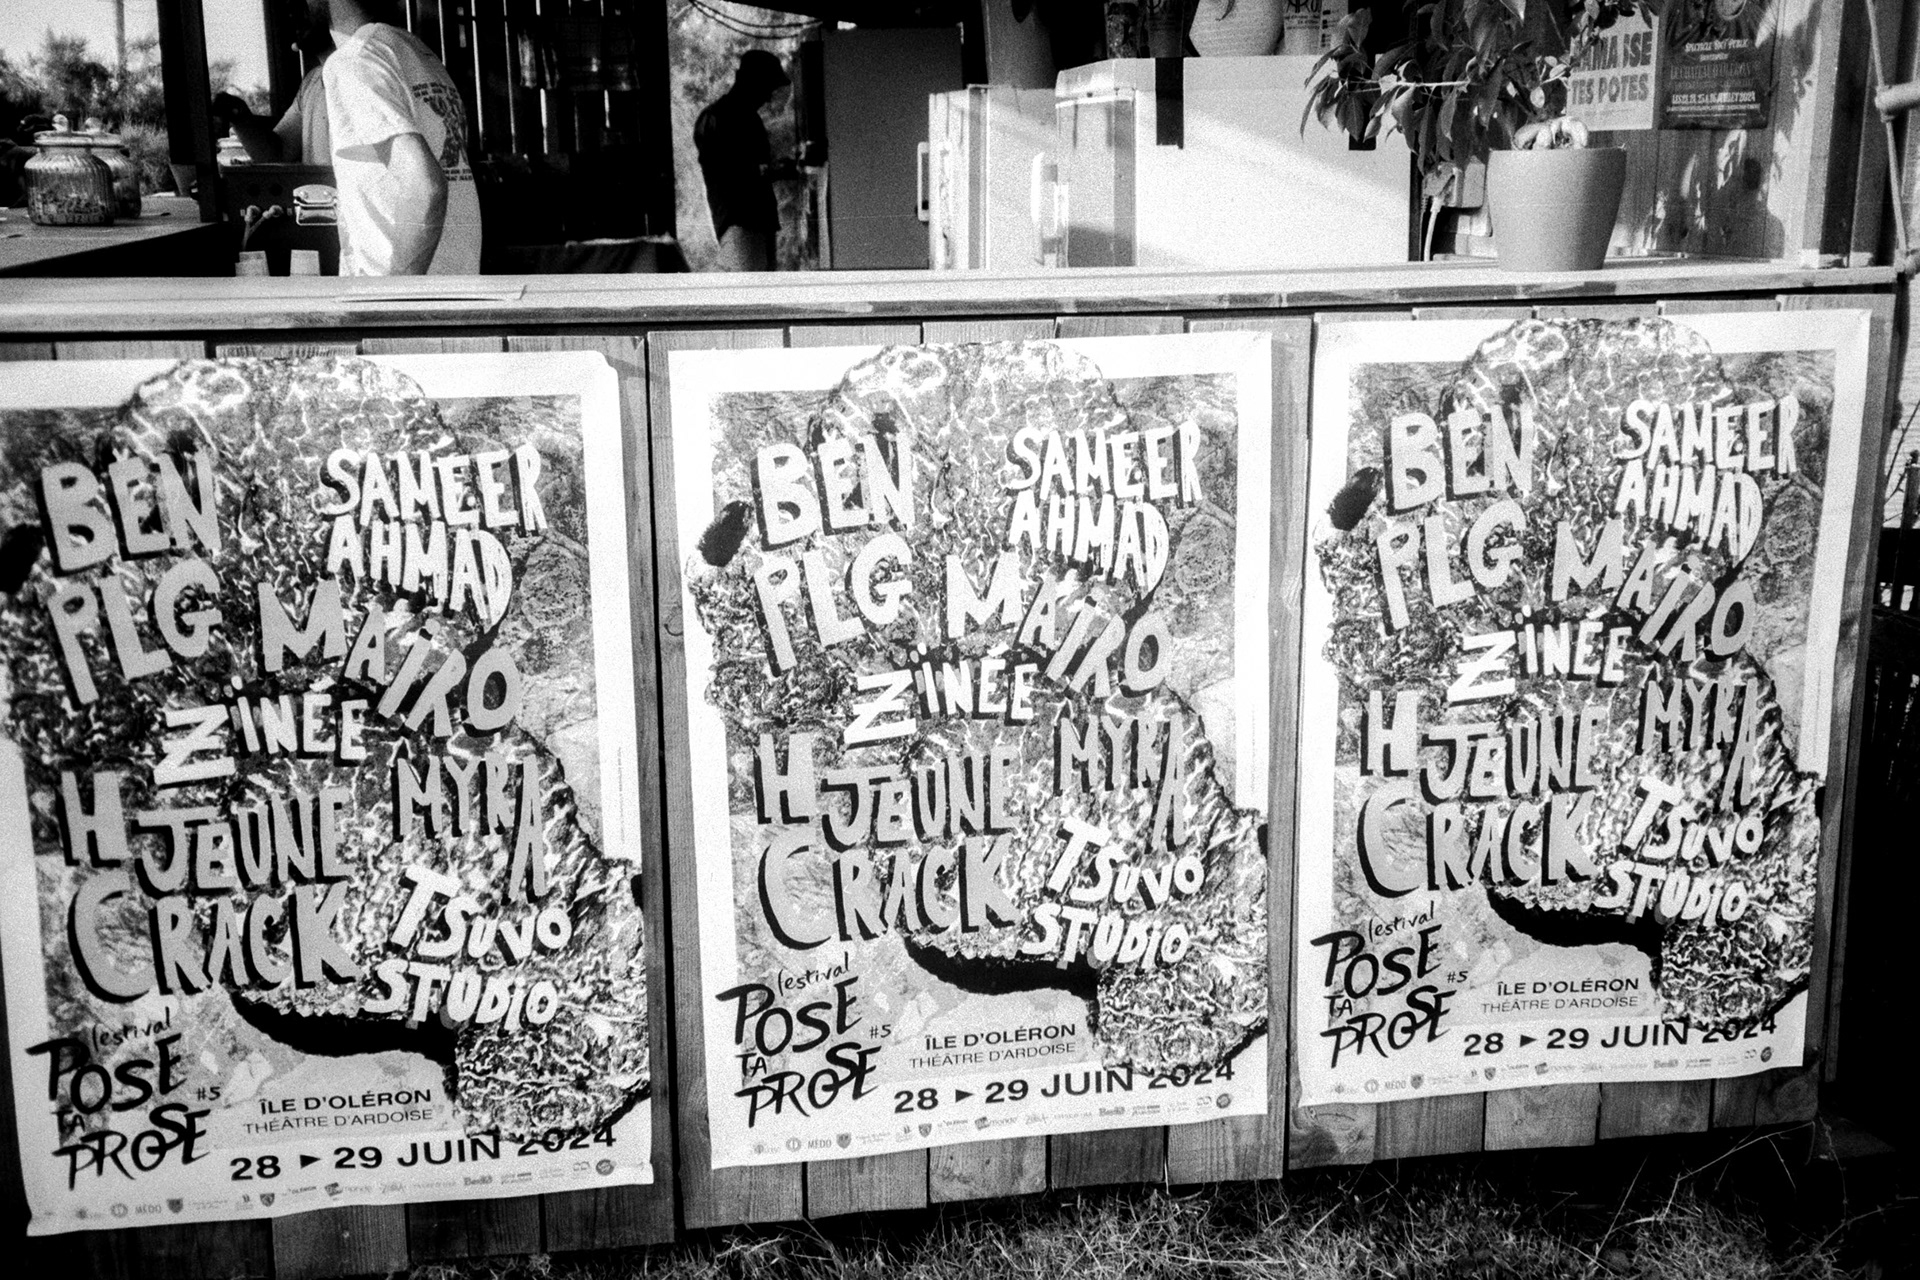 RAMASSE
TES POTES
SPECTACLE TOUT PUBLIC
BEN
PLG
SAMEER
AHMAD
MAÏRO
ZINÉE
H JEUNE
CRACK
MYRA
TSUVO
STUDIO
festival
POSE
TA
PROSE
#5
ÎLE D'OLÉRON
THÉÂTRE D'ARDOISE
28 ► 29 JUIN 2024
MÉDO
BEN
PLG
SAMEER
AHMAD
MAÏRO
ZINÉE
H JEUNE
CRACK
MYRA
TSUVO
STUDIO
festival
POSE
TA
PROSE
#5
ÎLE D'OLÉRON
THÉÂTRE D'ARDOISE
28 ► 29 JUIN 2024
MÉDO
BEN
PLG
SAMEER
AHMAD
MAÏRO
ZINÉE
H JEUNE
CRACK
MYRA
TSUVO
STUDIO
festival
POSE
TA
PROSE
#5
ÎLE D'OLÉRON
THÉÂTRE D'ARDOISE
28 ► 29 JUIN 2024
MÉDO